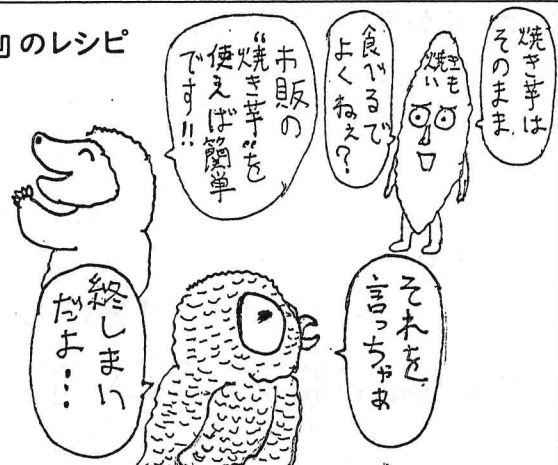 』のレシピ
焼き芋は
そのまま、
食べるで
よくねぇ?
焼き
いも
市販の
"焼き芋"を
使えば簡単
です!!
それを
言っちゃぁ
終しまい
だよ…